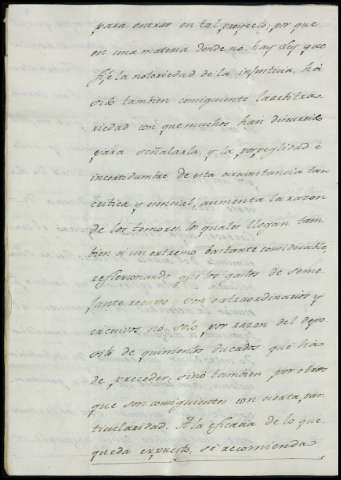 para entrar en tal proyecto, por que
en una materia donde no hay ley que
fije la notoriedad de la injusticia, ha
sido tambien consiguiente la arbitra
riedad con que muchos han discurrido
para señalarla, y la perplegidad è
incertidumbre de esta circunstancia tan
critica y esencial, aumenta la razon
de los temores los quales llegan tam
bien à un extremo bastante considerable,
reflexionando q.e los gastos de seme
jante recurso son extraordinarios y
excesivos no solo por razon del depo
sito de quinientos ducados que há
de preceder, sinó tambien por otros
que son consiguientes con exacta par
ticularidad. A la eficacia de lo que
queda expuesto, se recomienda